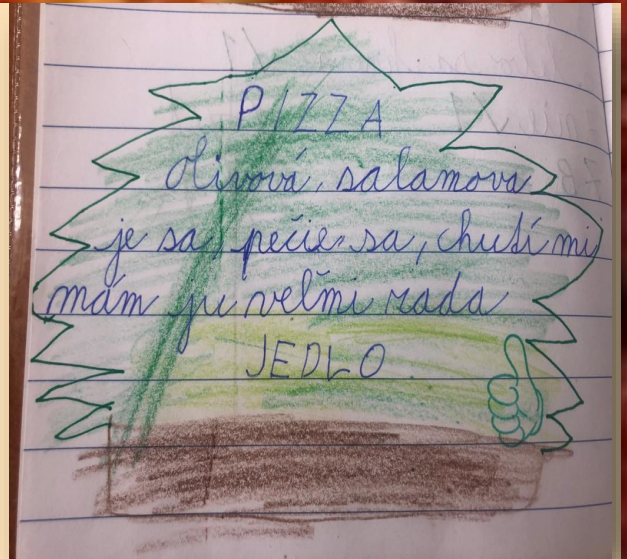 PIZZA
Olivová, salamova
je sa, pečie sa, chutí mi
mám ju veľmi rada
JEDLO